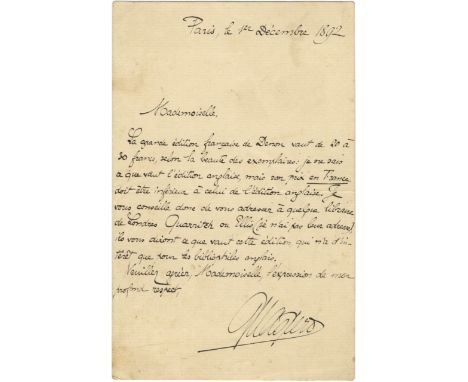 Paris, le 1er Décembre 1892
Mademoiselle,
La grande édition française de Denon vaut de 20 à
30 francs, selon la beauté des exemplaires: je ne sais
ce que vaut l'édition anglaise, mais son prix en France
doit être inférieur à celui de l'édition anglaise. Je
vous conseille donc de vous adresser à quelque libraire
de Londres Quarritch ou Ellis (je n'ai pas leur adresse)
ils vous diront ce que vaut cette édition qui n'a d'in-
térêt que pour les bibliophiles anglais.
Veuillez agréer, Mademoiselle l'expression de mon
profond respect,
GMaspero